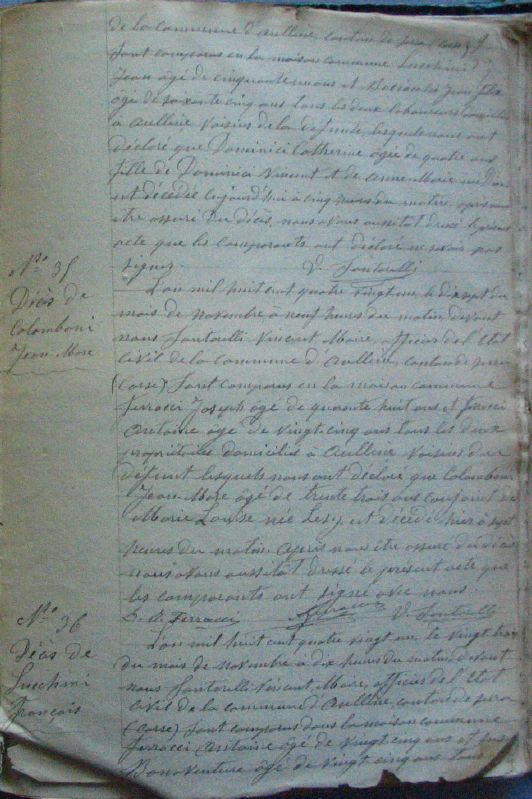 de la commune d'Aullene, canton de
sont comparus en la maison commune Lucchini
Jean âgé de cinquante un ans et Jean
âgé de soixante cinq ans tous les deux laboureurs
à Aullene voisins de la défunte, lesquels nous ont
déclaré que Dominici Catherine âgée de quatre ans
fille de Dominici Vincent et de Anne Marie
est décédée aujourd'hui à cinq heures du matin, après nous
être assuré du décès, nous avons aussitôt dressé le présent
acte que les comparants ont déclaré ne savoir pas
signer. V. Santarelli
No. 35
Décès de
Colomboni
Jean Mare
L'an mil huit cent quatre vingt une, le dix sept du
mois de Novembre à neuf heures du matin devant
nous Santarelli Vincent Maire, officier de l'Etat
civil de la commune d'Aullene, canton de
(Corse) sont comparus en la maison commune
Ferracci Joseph âgé de quarante huit ans et Ferracci
Antoine âgé de vingt-cinq ans tous les deux
propriétaires domiciliés à Aullene voisins du
défunt lesquels nous ont déclaré que Colomboni
Jean Mare âgé de trente trois ans conjoint de
Marie Louise née est décédé hier à sept
heures du matin. après nous être assuré du décès
nous avons aussitôt dressé le présent acte que
les comparants ont signé avec nous.
Ferracci V. Santarelli
No. 36
Décès de
Lucchini
François
L'an mil huit cent quatre vingt une, le vingt trois
du mois de Novembre à dix heures du matin devant
nous Santarelli Vincent, Maire, officier de l'Etat
civil de la commune d'Aullene, canton de
(Corse) sont comparus dans la maison commune
Ferracci Antoine âgé de vingt cinq ans et
Bonaventure âgé de vingt cinq ans tous